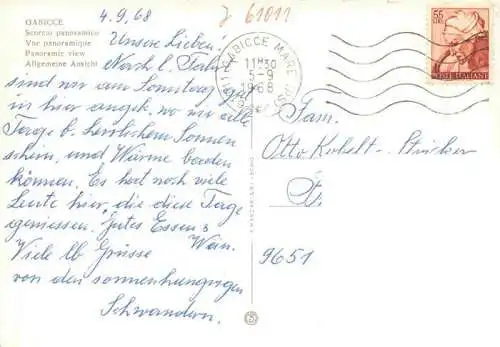 4.9.68
J 61011
GABICCE
Scorcio panoramico
Vue panoramique
Panoramic view
Allgemeine Ansicht
Unsere Lieben!
Nach l. Fahrt
sind wir am Sonntag gut
in hier angek. wo wir alle
Tage b. herrlichem Sonnen
schein, und Wärme baden
können. Es hat noch viele
Leute hier, die die Tage
geniessen. Gutes Essen &
Wein.
Viele lb Grüsse
von den sonnenhungrigen
Schwandern.
GABICCE MARE
11H30
5-9
1968
55
POSTE ITALIANE
Fam.
Otto Kobelt-Stricker
9651